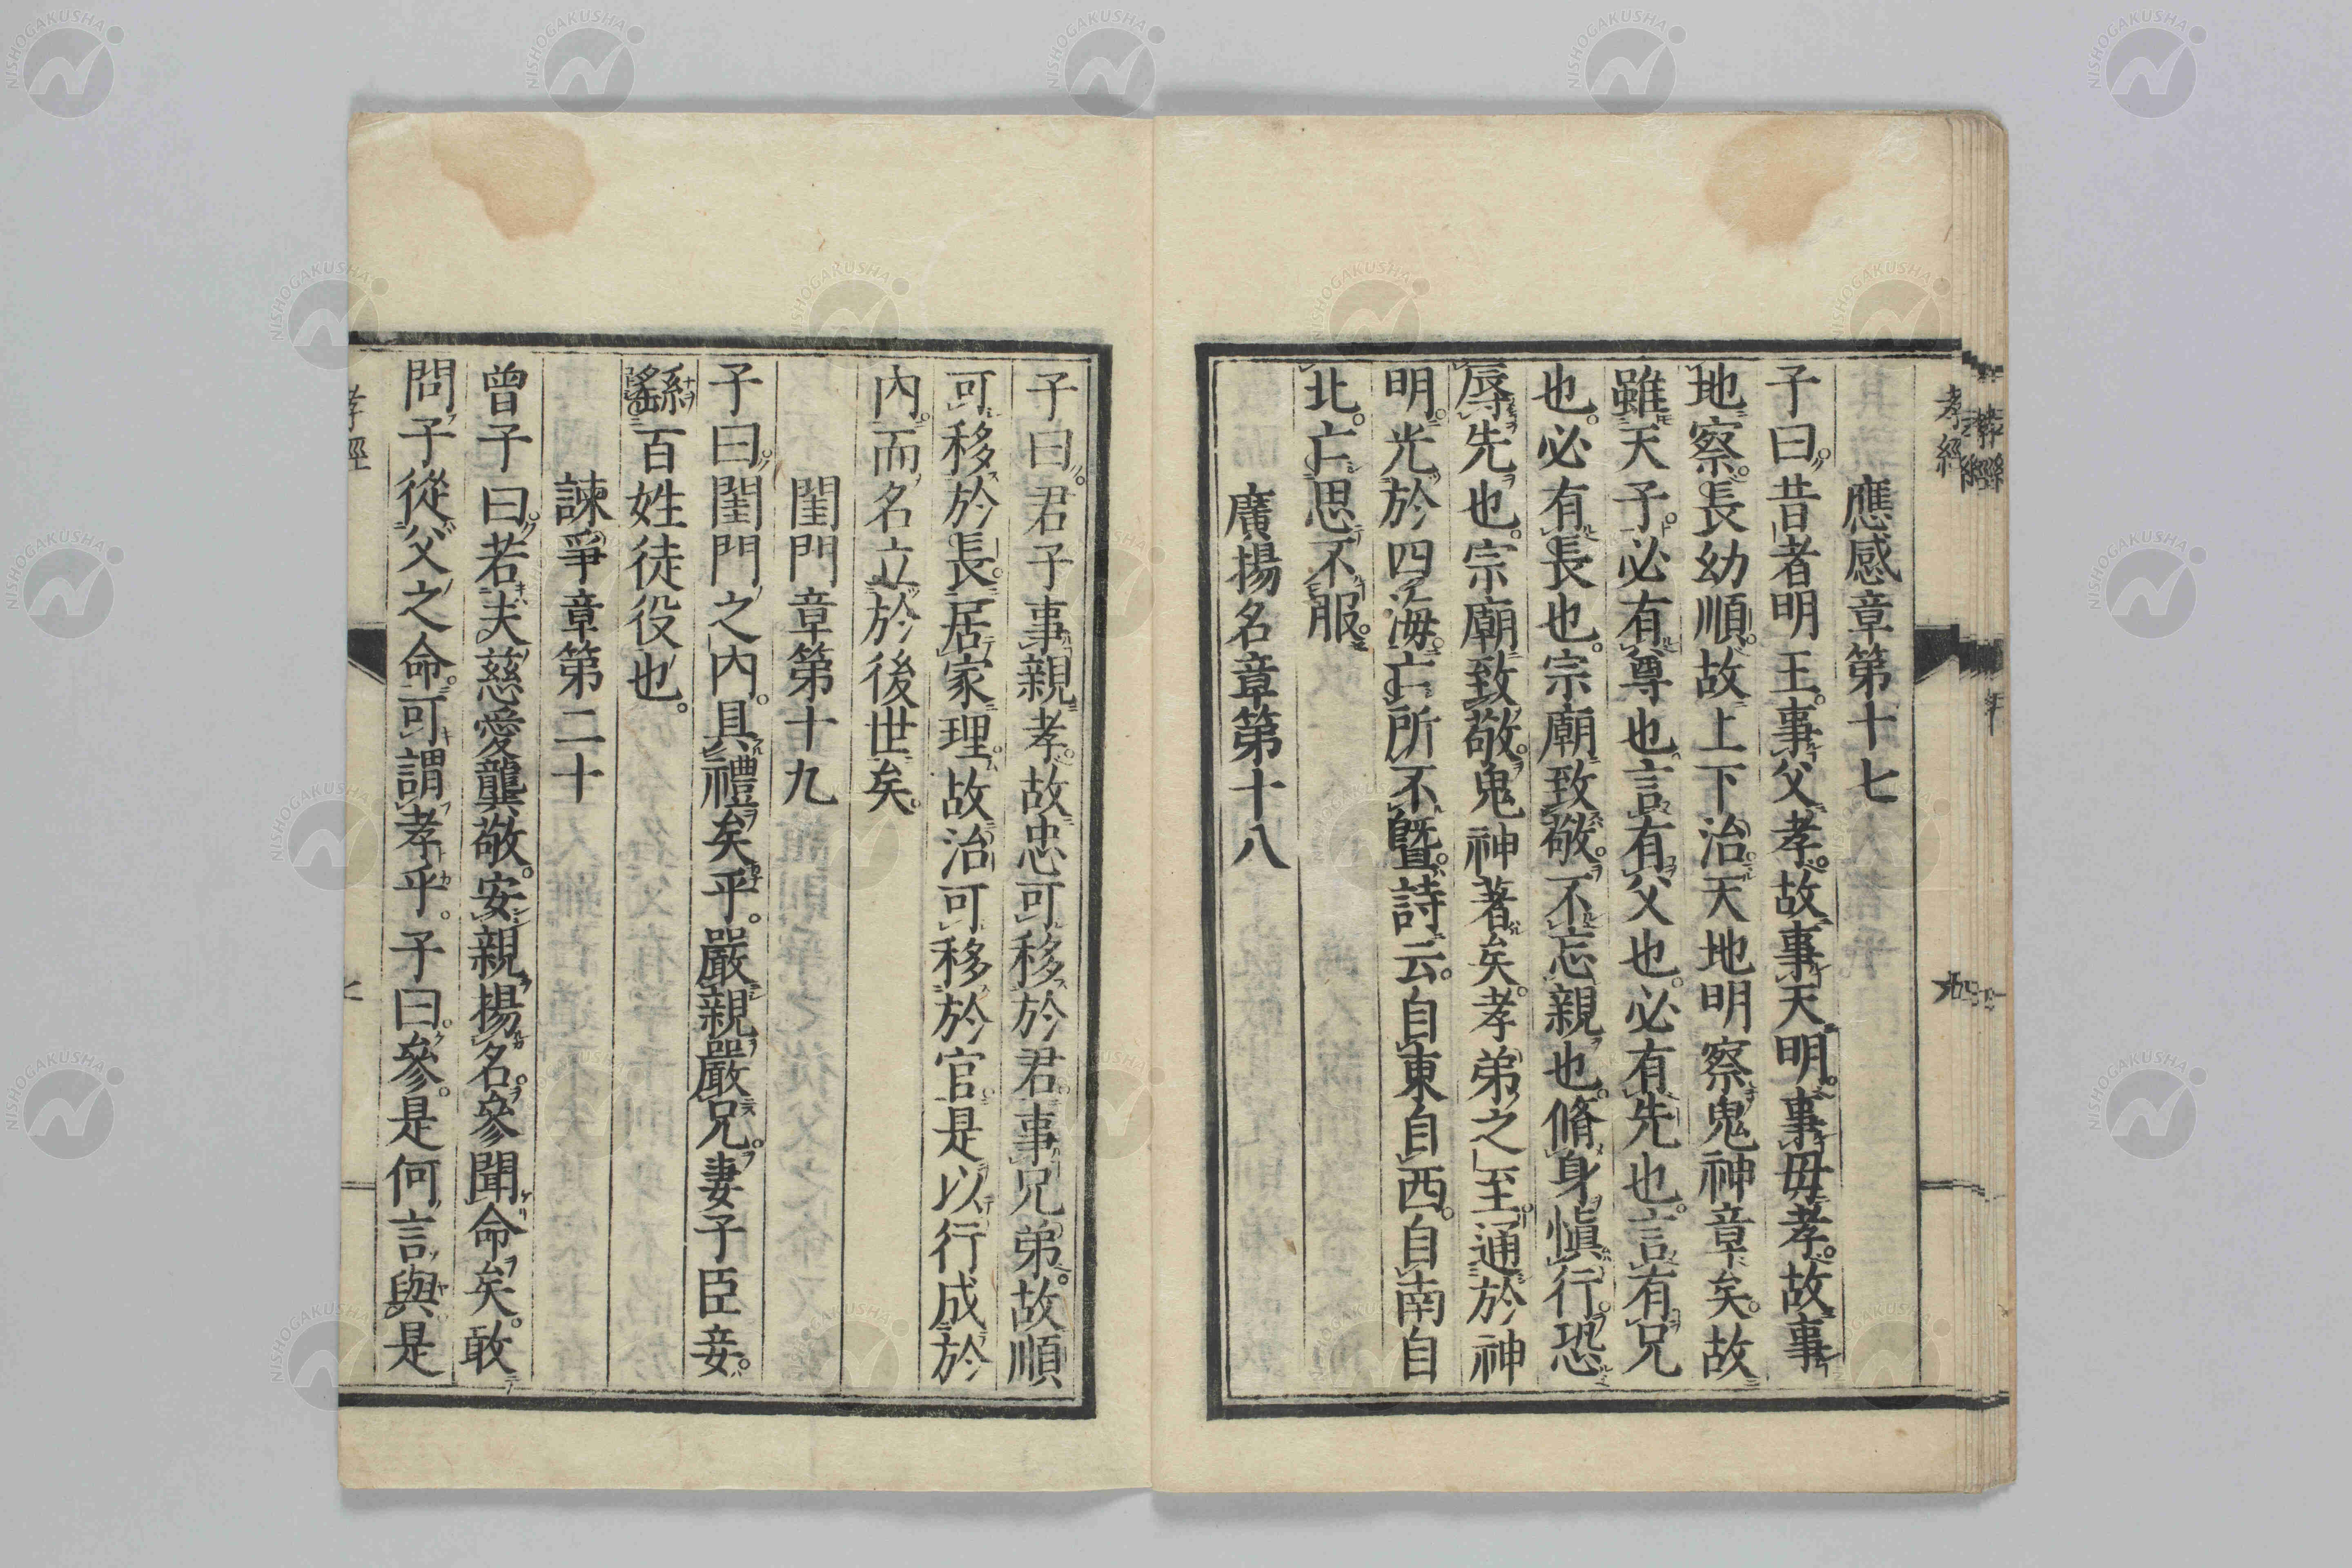 應感章第十七
子曰昔者明王事父孝故事天明事母孝故事
地察長幼順故上下治天地明察鬼神章矣故
雖天子必有尊也言有父也必有先也言有兄
也必有長也宗廟致敬不忘親也脩身愼行恐
辱先也宗廟致敬鬼神著矣孝弟之至通於神
明光於四海亡所不曁詩云自東自西自南自
北亡思不服
廣揚名章第十八
子曰君子事親孝故忠可移於君事兄弟故順
可移於長居家理故治可移於官是以行成於
內而名立於後世矣
閨門章第十九
子曰閨門之內具禮矣乎嚴親嚴兄妻子臣妾
繇百姓徒役也
諫爭章第二十
曾子曰若夫慈愛龔敬安親揚名參聞命矣敢
問子從父之命可謂孝乎子曰參是何言與是
孝經
孝經
NISHOGAKUSHA